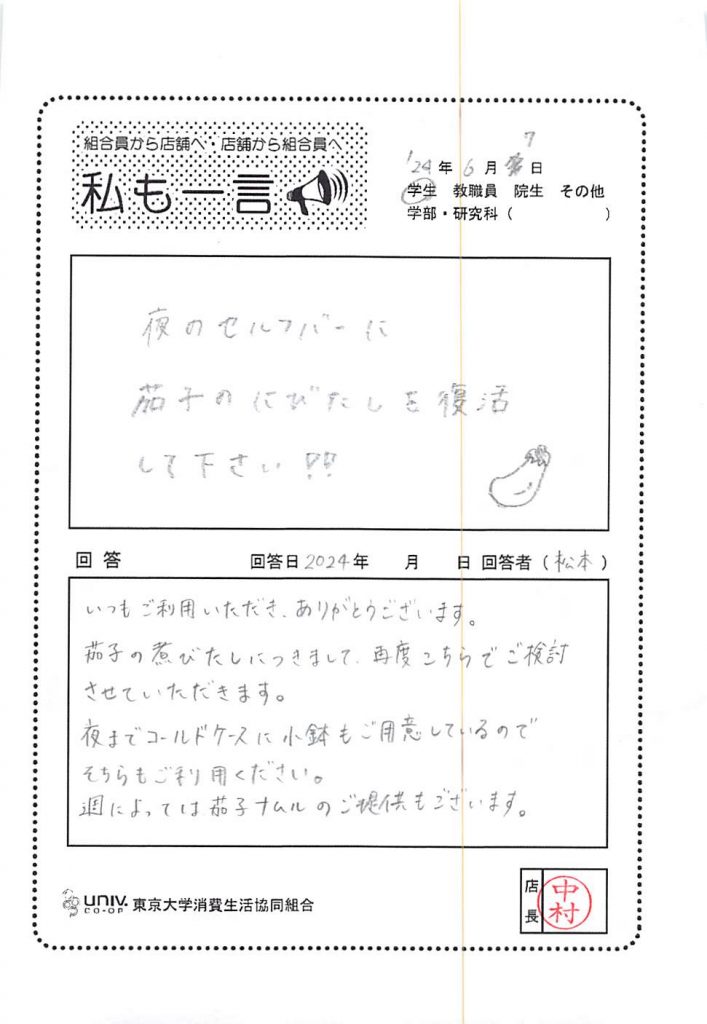 組合員から店舗へ・店舗から組合員へ
私も一言
'24年 6月 7日
学生 教職員 院生 その他
学部・研究科（ ）
夜のセルフバーに
茄子のにびたしを復活
して下さい!!
回答 回答日2024年 月 日 回答者（松本）
いつもご利用いただき、ありがとうございます。
茄子の煮びたしにつきまして、再度こちらでご検討
させていただきます。
夜までコールドケースに小鉢もご用意しているので
そちらもご利用ください。
週によっては茄子ナムルのご提供もございます。
UNIV. CO-OP 東京大学消費生活協同組合
店長 中村